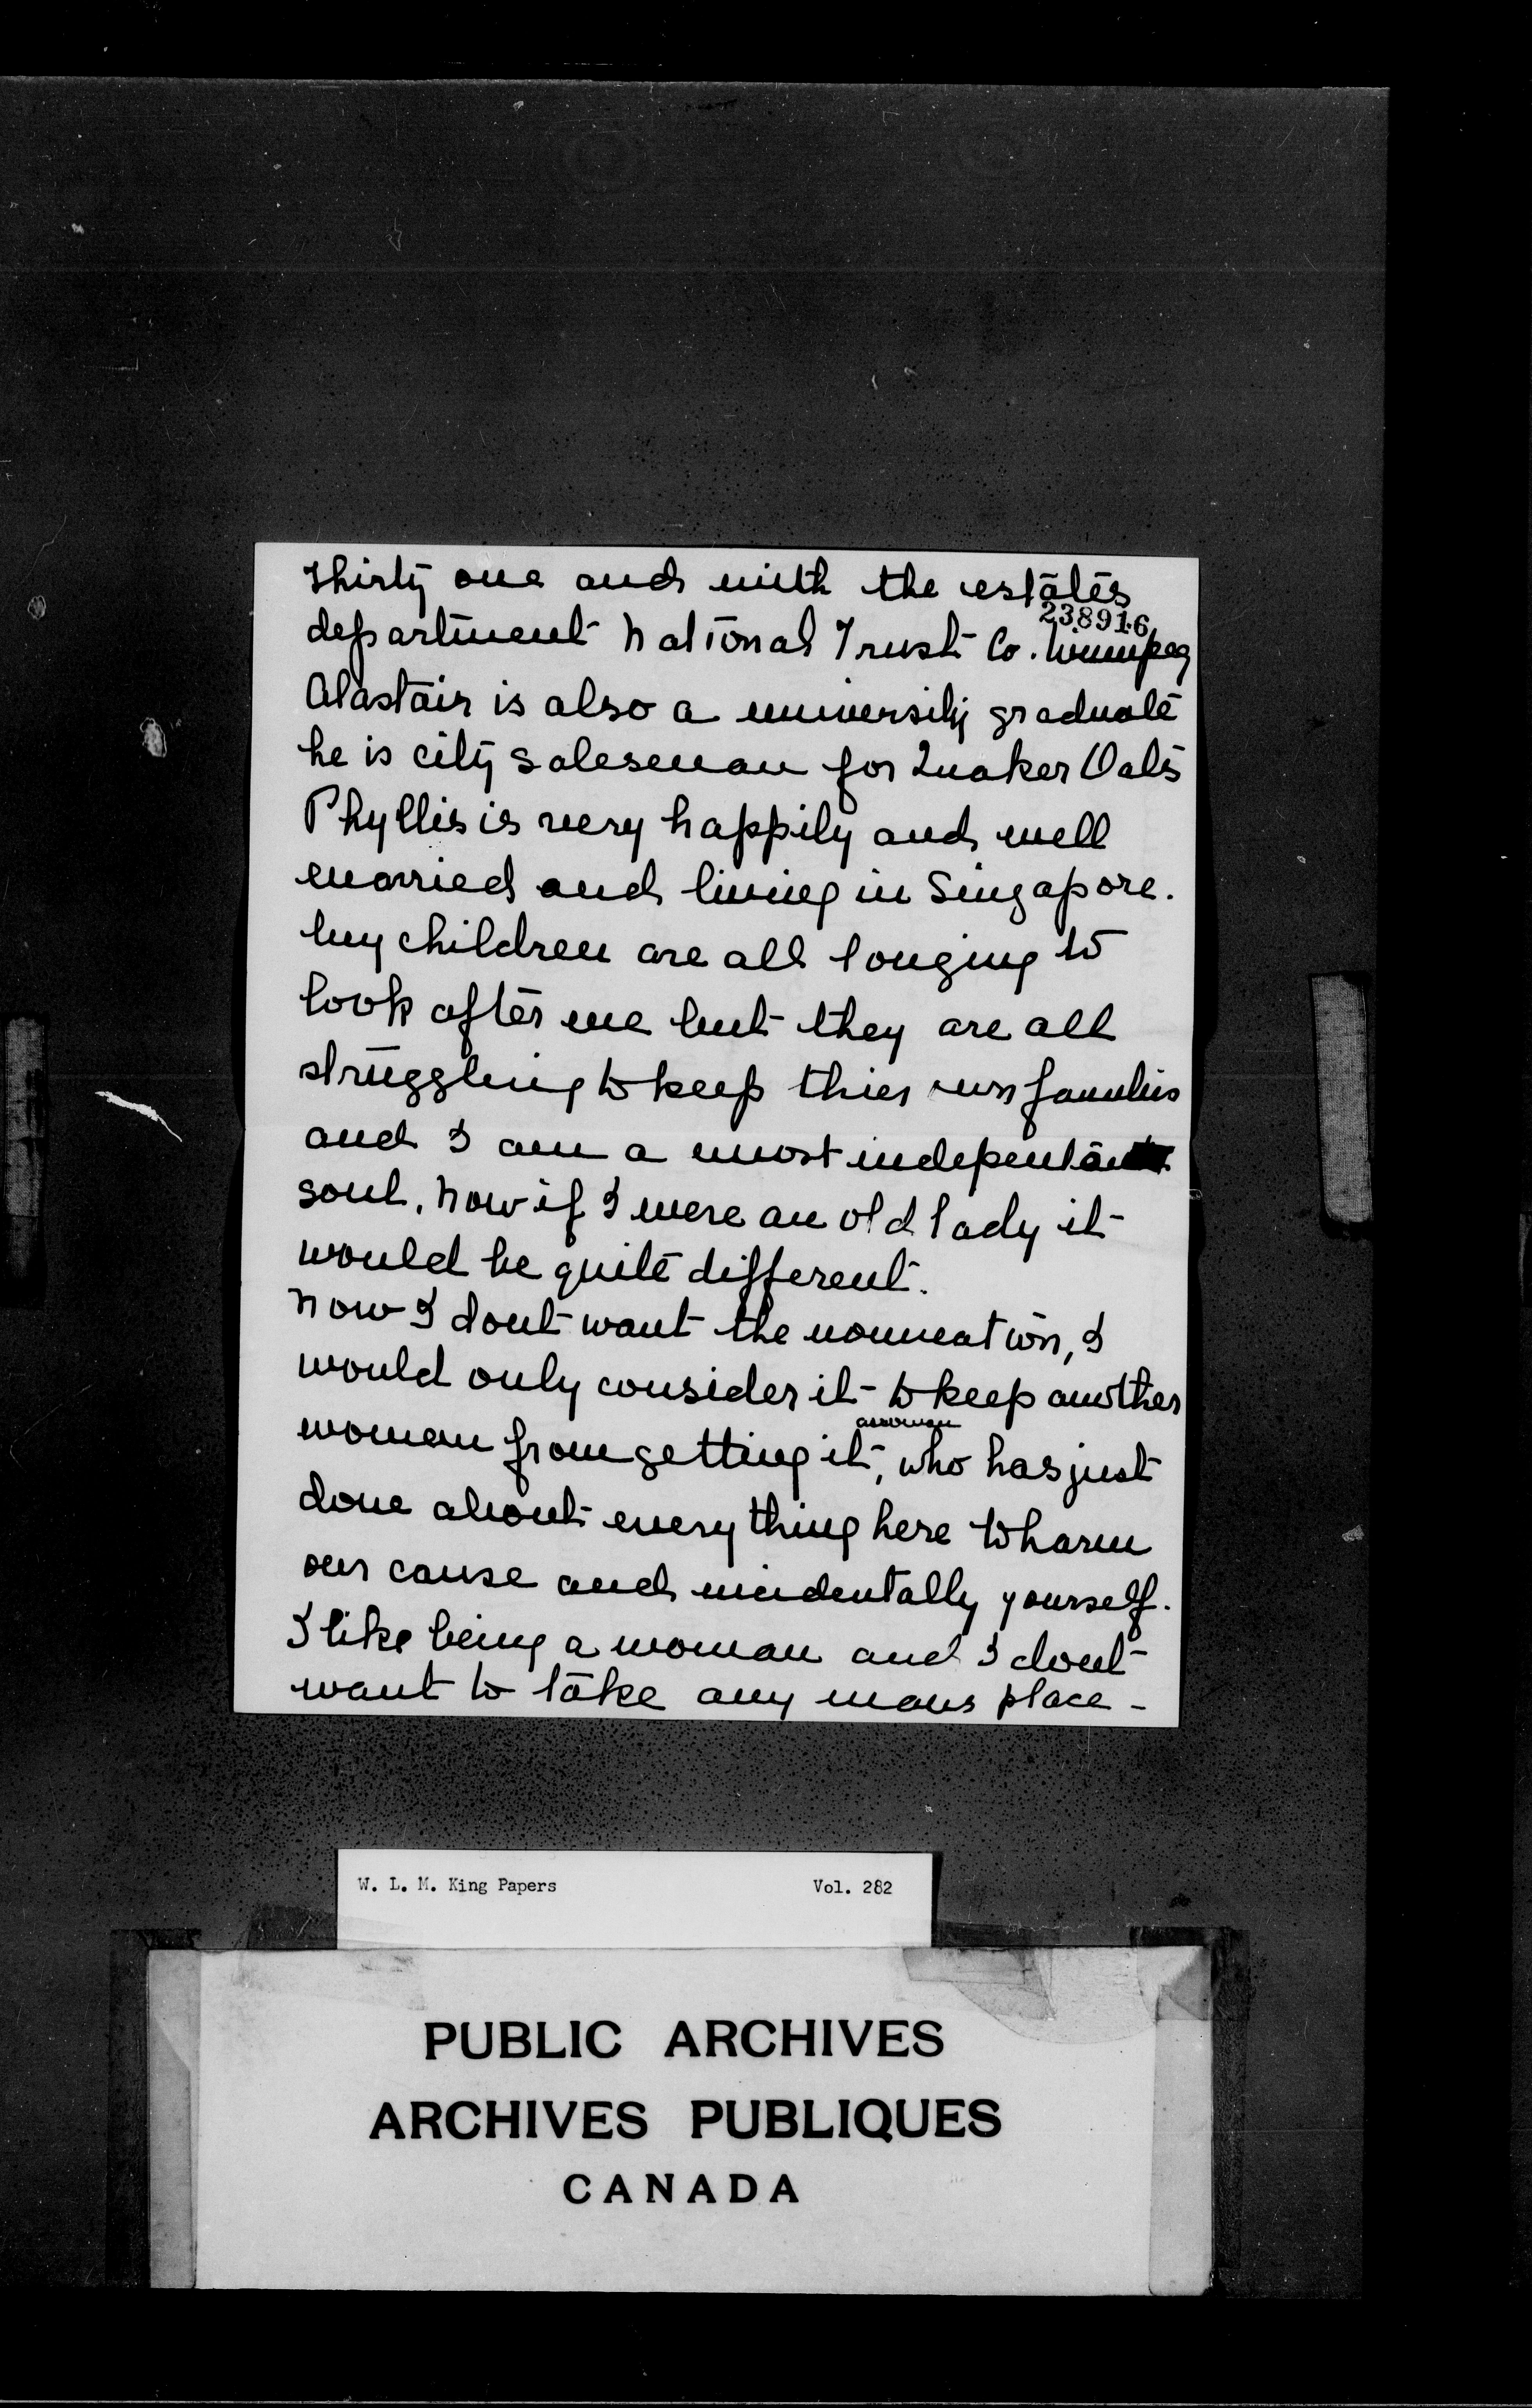 thirty one and with the estates
238916
department National Trust Co. Winnipeg
Alastair is also a university graduate
he is city salesman for Quaker Oats
Phyllis is very happily and well
married and living in Singapore.
My children are all longing to
look after me but they are all
struggling to keep thier own families
and I am a most independant
soul. Now if I were an old lady it
would be quite different.
Now I dont want the nomination, I
would only consider it to keep another
a woman
woman from getting it, who has just
done about every thing here to harm
our cause and incidentally yourself.
I like being a woman and I dont
want to take any mans place -
W. L. M. King Papers Vol. 282
PUBLIC ARCHIVES
ARCHIVES PUBLIQUES
CANADA